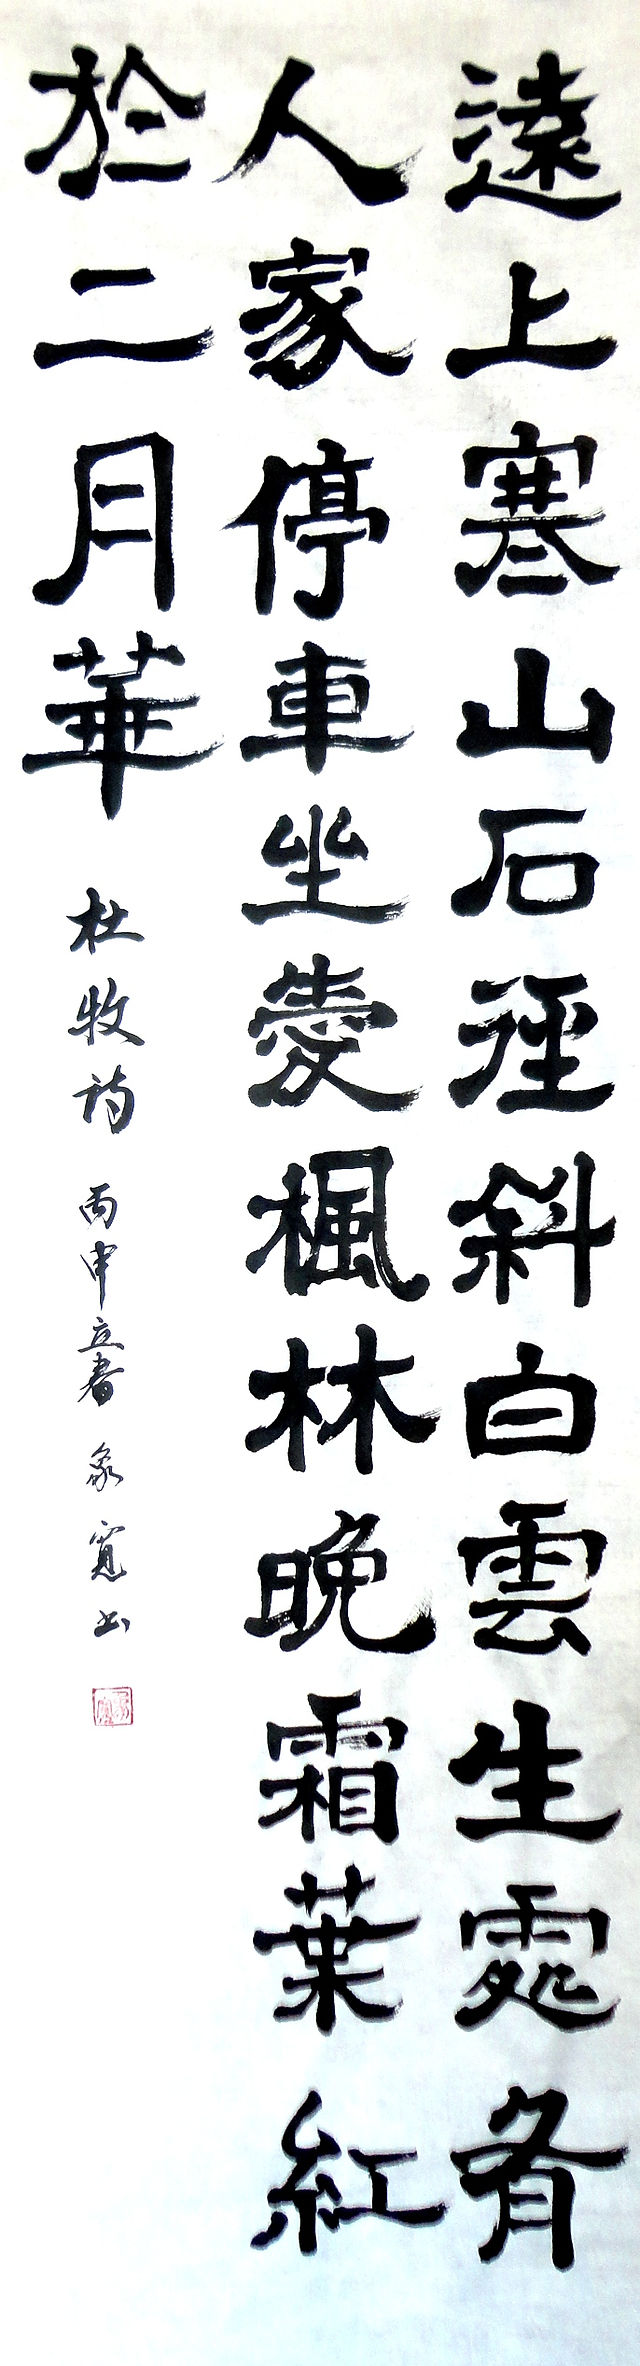 遠上寒山石徑斜白雲生處有
人家停車坐愛楓林晚霜葉紅
於二月華
杜牧诗 丙申立春 象寬书